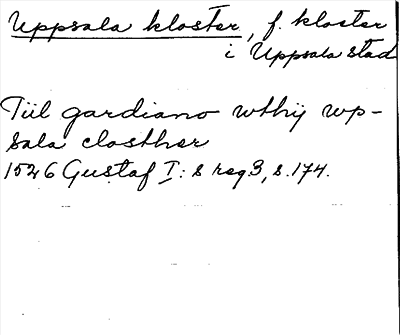 Uppsala kloster, f. kloster
i Uppsala stad
Till gardiano wthij wp-
sala closther
1526 Gustaf I:s reg. 3, s. 174.